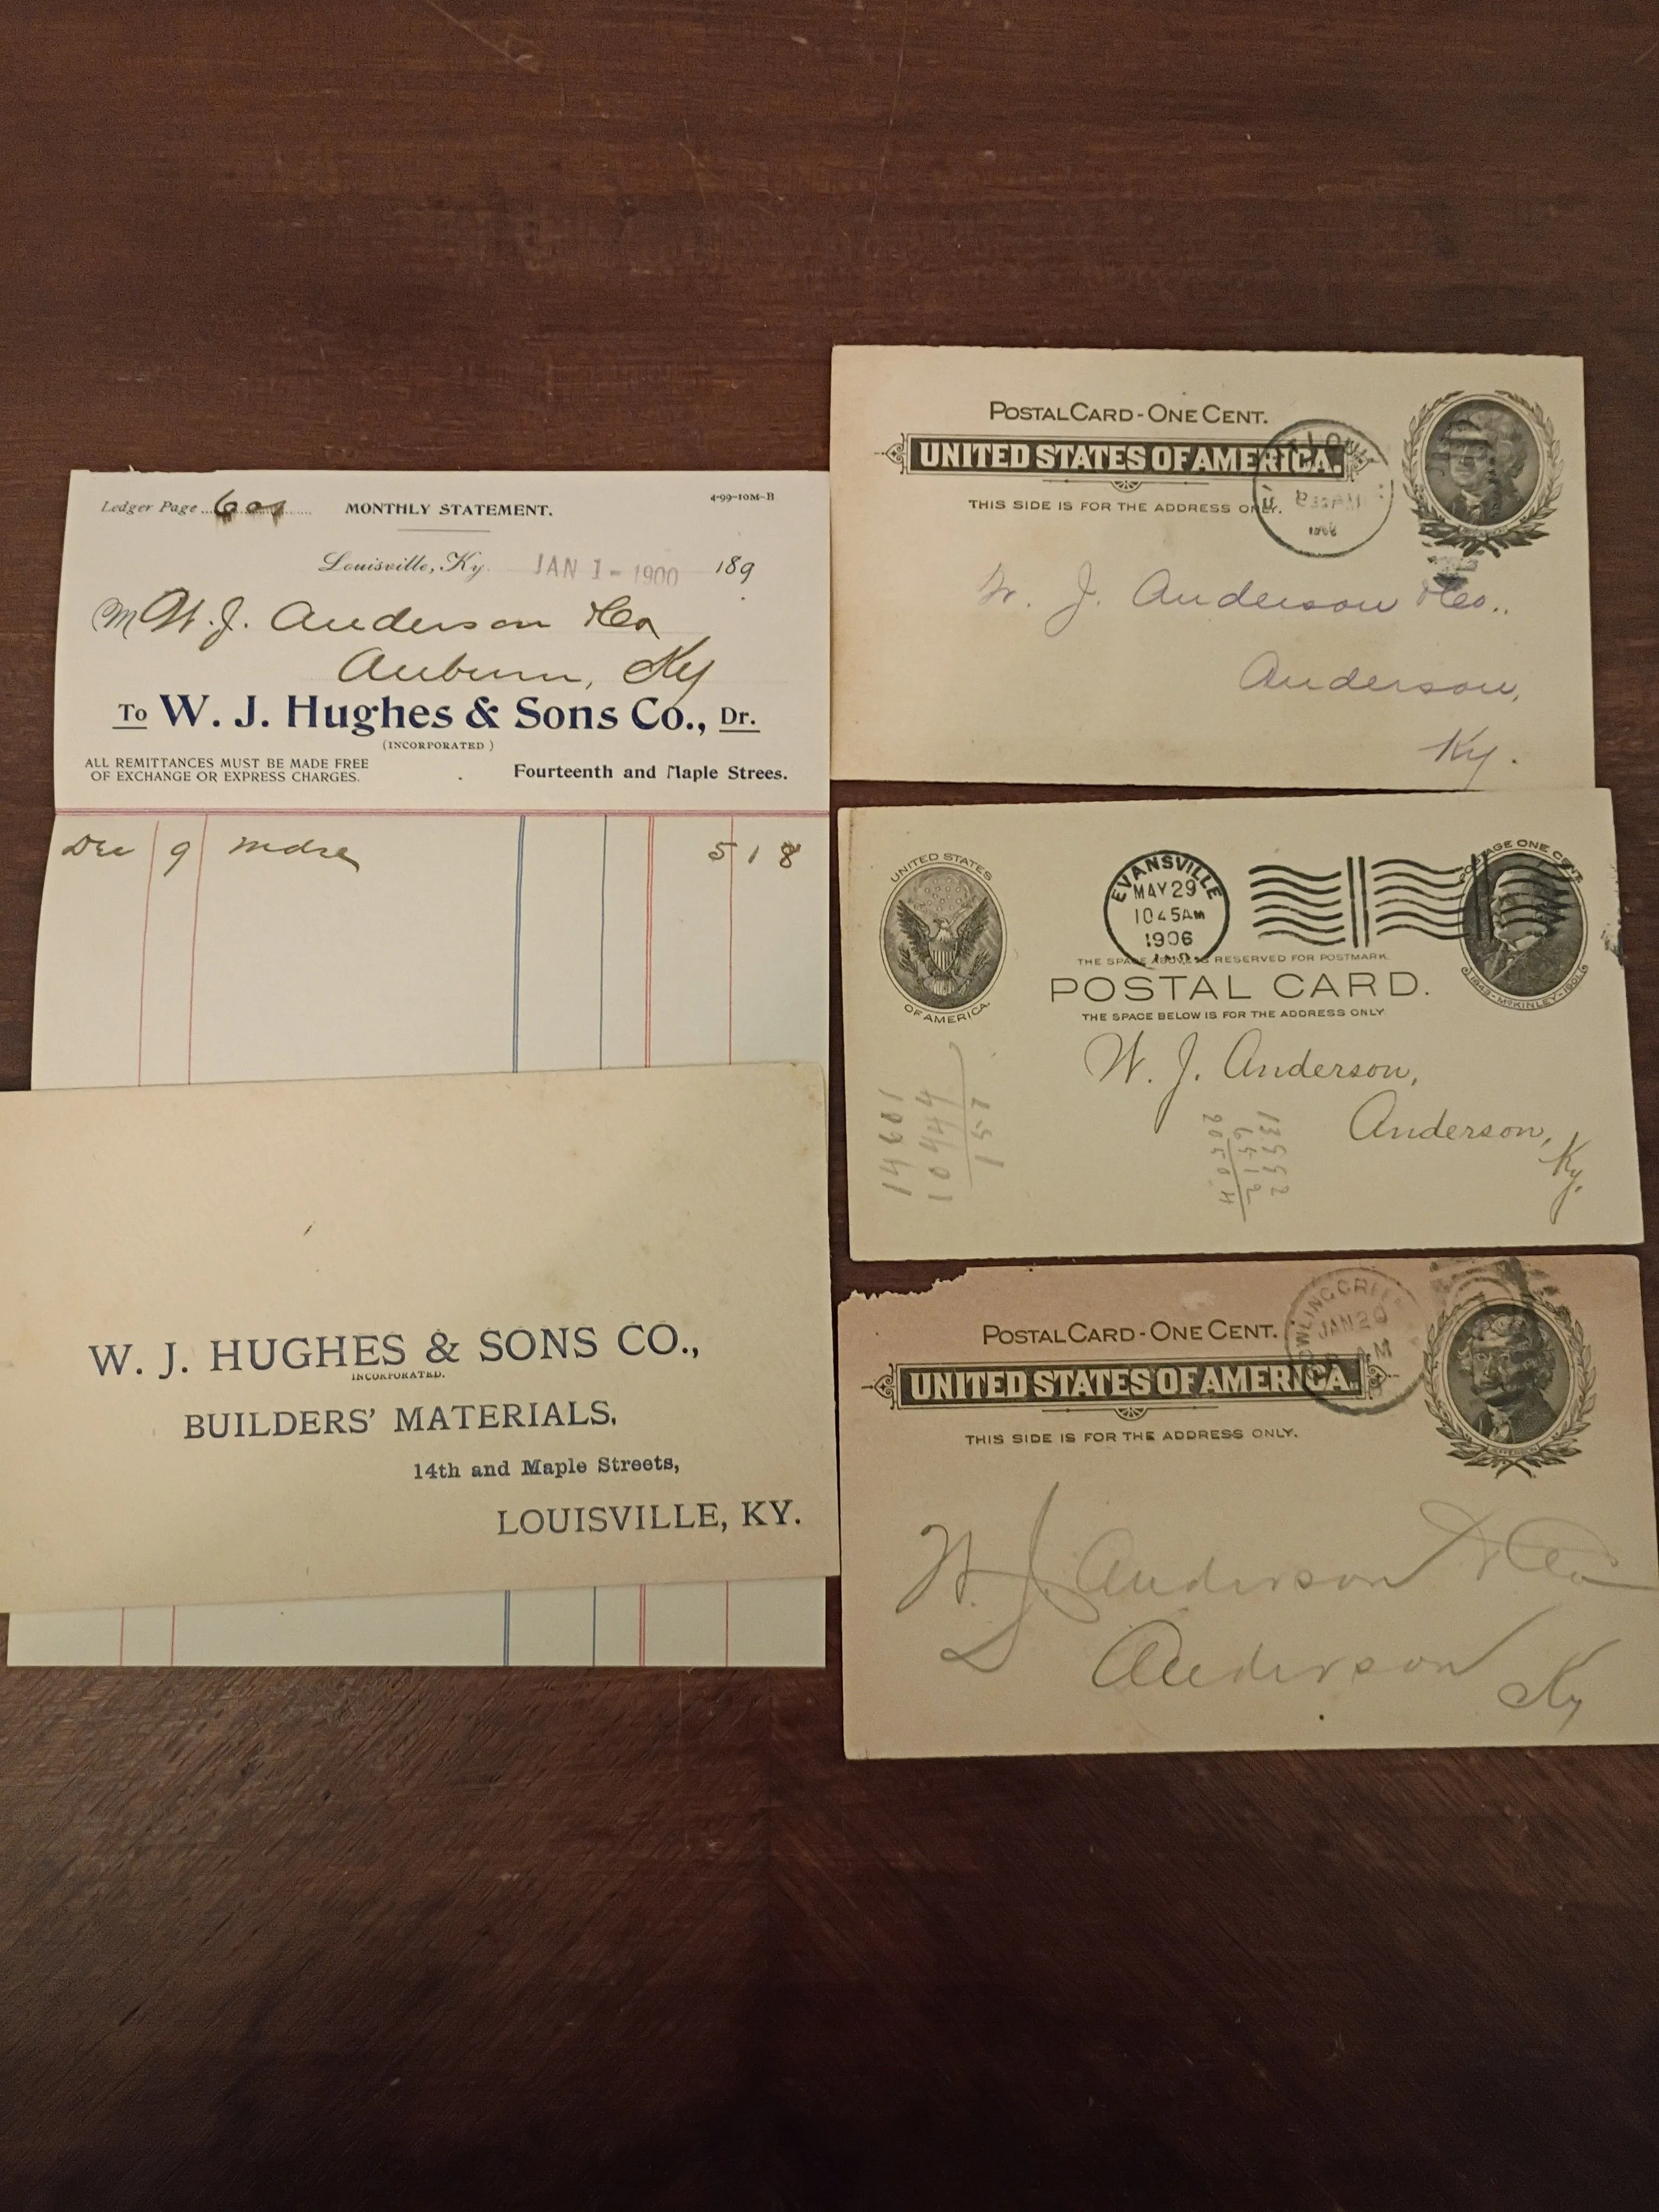 Ledger Page 601 MONTHLY STATEMENT. 4-99-10M-B
Louisville, Ky. JAN 1 - 1900 189
M W. J. Anderson & Co
Auburn, Ky
To W. J. Hughes & Sons Co., Dr.
(INCORPORATED)
ALL REMITTANCES MUST BE MADE FREE
OF EXCHANGE OR EXPRESS CHARGES.
Fourteenth and Maple Strees.
Dec 9 mdse 5 18
W. J. HUGHES & SONS CO.,
INCORPORATED.
BUILDERS' MATERIALS,
14th and Maple Streets,
LOUISVILLE, KY.
POSTAL CARD - ONE CENT.
UNITED STATES OF AMERICA.
THIS SIDE IS FOR THE ADDRESS ONLY.
W. J. Anderson & Co.,
Anderson,
Ky.
UNITED STATES
OF AMERICA.
EVANSVILLE
MAY 29
1045AM
1906
IND.
POSTAGE ONE CENT.
1843-McKINLEY-1901
THE SPACE ABOVE IS RESERVED FOR POSTMARK.
POSTAL CARD.
THE SPACE BELOW IS FOR THE ADDRESS ONLY
W. J. Anderson,
Anderson,
Ky.
14601
10444
157
13992
6512
20504
POSTAL CARD - ONE CENT.
UNITED STATES OF AMERICA.
THIS SIDE IS FOR THE ADDRESS ONLY.
BOWLING GREEN
JAN 20
AM
JEFFERSON
W. J. Anderson & Co
Anderson
Ky